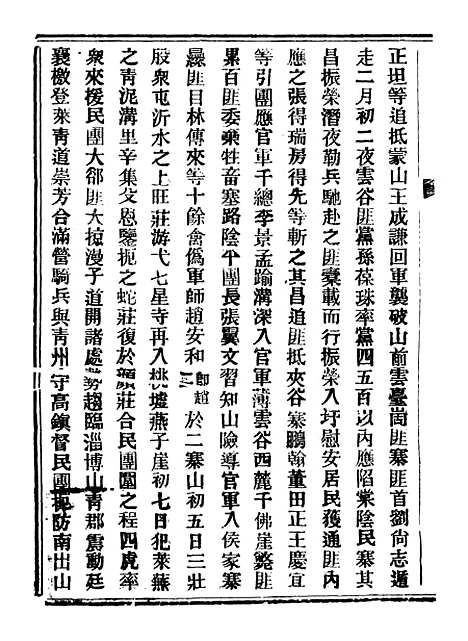 正坦等追抵蒙山王成謙回軍襲破山前雲臺崮匪寨匪首劉尚志遁
走二月初二夜雲谷匪黨孫葆珠率黨四五百以內應陷棠陰民寨其
昌振榮潛夜勒兵馳赴之匪橐載而行振榮入圩慰安居民獲通匪內
應之張得瑞房得先等斬之其昌追匪抵夾谷寨鵬翰董田正王慶宣
等引團應官軍千總李景孟踰溝深入官軍薄雲谷西麓千佛崖斃匪
累百匪委藥牲畜塞路陰平團長張翼文習知山險導官軍入侯家寨
㬥匪目林傳來等十餘禽僞軍師趙安和卽趙三於二寨山初五日三壯
股衆屯沂水之上旺莊游弋七星寺再入桃墟燕子崖初七日犯萊蕪
之靑泥溝里辛集爻恩鑒扼之蛇莊復於顏莊合民團圍之程四虎率
衆來援民團大郤匪大掠漫子道開諸處勢趨臨淄博山靑郡震動廷
襄檄登萊靑道崇芳合滿營騎兵與靑州守高鎮督民團扼防南出山